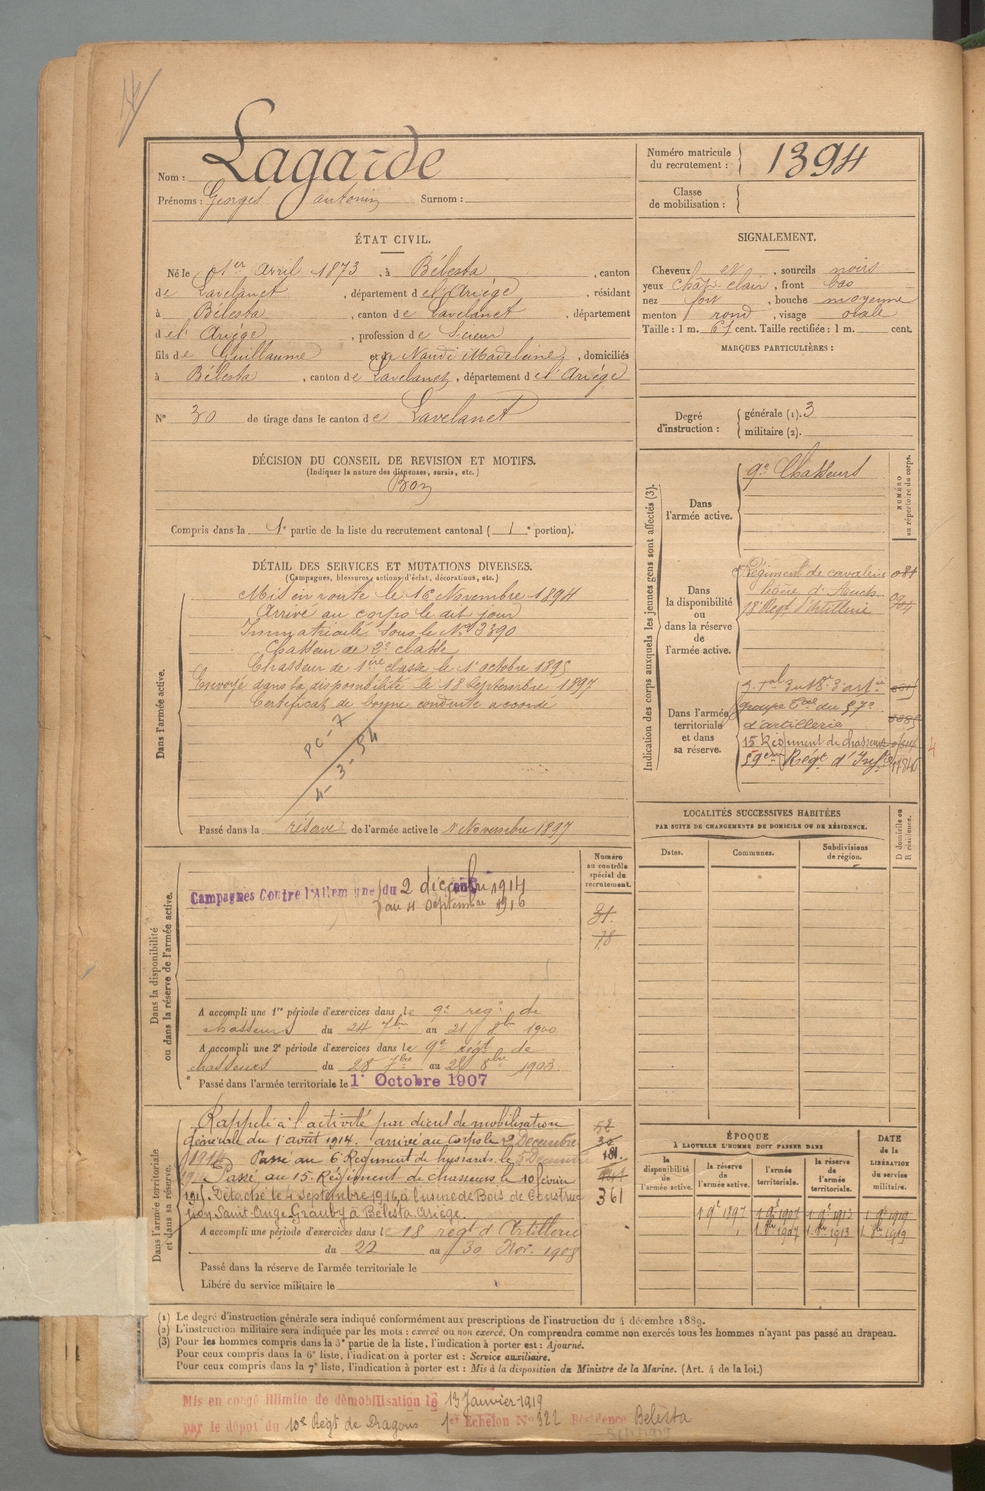 Nom : Lagarde
Prénoms : Georges antonin Surnom :
Numéro matricule du recrutement : 1394
Classe de mobilisation :
ÉTAT CIVIL.
Né le 1er Avril 1873, à Bélesta, canton
de Lavelanet, département de l'Ariège, résidant
à Bélesta, canton de Lavelanet, département
de l'Ariège, profession de Scieur
fils de Guillaume et de Naudi Madeleine, domiciliés
à Bélesta, canton de Lavelanet, département de l'Ariège
N° 30 de tirage dans le canton de Lavelanet
SIGNALEMENT.
Cheveux et, sourcils noirs
yeux chat. clair, front bas
nez fort, bouche moyenne
menton rond, visage ovale
Taille : 1 m. 67 cent. Taille rectifiée : 1 m. cent.
MARQUES PARTICULIÈRES :
Degré d'instruction :
générale (1). 3
militaire (2).
DÉCISION DU CONSEIL DE REVISION ET MOTIFS.
(Indiquer la nature des dispenses, sursis, etc.)
Bon
Compris dans la 1e partie de la liste du recrutement cantonal ( 1e portion).
DÉTAIL DES SERVICES ET MUTATIONS DIVERSES.
(Campagnes, blessures, actions d'éclat, décorations, etc.)
Dans l'armée active.
Mis en route le 16 Novembre 1894
Arrivé au corps le dit jour
Immatriculé sous le No 3390
Chasseur de 2e classe
Chasseur de 1ère classe le 1er octobre 1895
Envoyé dans la disponibilité le 18 Septembre 1897
Certificat de bonne conduite accordé
Passé dans la réserve de l'armée active le 1er Novembre 1897
Indication des corps auxquels les jeunes gens sont affectés (3).
NUMÉRO au répertoire du corps.
Dans l'armée active.
9e Chasseurs
Dans la disponibilité ou dans la réserve de l'armée active.
Régiment de cavalerie
légère d'Auch
18e Régt d'Artillerie
Dans l'armée territoriale et dans sa réserve.
groupe Tal du 57e
d'artillerie
15 Régiment de chasseurs
59ème Régt d'Infie
LOCALITÉS SUCCESSIVES HABITÉES
PAR SUITE DE CHANGEMENTS DE DOMICILE OU DE RÉSIDENCE.
Dates. Communes. Subdivisions de région. D domicile ou R résidence.
Dans la disponibilité ou dans la réserve de l'armée active.
Numéro au contrôle spécial du recrutement.
Campagnes Contre l'Allemagne du 2 décembre 1914
au 4 Septembre 1916
31.
78
A accompli une 1re période d'exercices dans le 9e reg. de
chasseurs du 24 7bre au 21 8bre 1900
A accompli une 2e période d'exercices dans le 9e régt de
chasseurs du 28 7bre au 8bre 1903.
Passé dans l'armée territoriale le 1er Octobre 1907
Dans l'armée territoriale et dans sa réserve.
Rappelé à l'activité par décret de mobilisation
générale du 1er août 1914. arrivé au corps le 2 Décembre
1914 Passé au 6 Régiment de hussards le 5 Décembre
Passé au 15. Régiment de chasseurs le 10 février
191. Détaché le 4 Septembre 1916 à l'usine de Bois de Construc
tion Saint Ange Grauby à Bélesta Ariège.
361
A accompli une période d'exercices dans le 18 régt d'Artillerie
du 22 au 30 Nov. 1908
Passé dans la réserve de l'armée territoriale le
Libéré du service militaire le
ÉPOQUE
À LAQUELLE L'HOMME DOIT PASSER DANS
la disponibilité de l'armée active.
la réserve de l'armée active.
l'armée territoriale.
la réserve de l'armée territoriale.
DATE DE LA LIBÉRATION du service militaire.
(1) Le degré d'instruction générale sera indiqué conformément aux prescriptions de l'instruction du 4 décembre 1889.
(2) L'instruction militaire sera indiquée par les mots : exercé ou non exercé. On comprendra comme non exercés tous les hommes n'ayant pas passé au drapeau.
(3) Pour les hommes compris dans la 3e partie de la liste, l'indication à porter est : Ajourné.
Pour ceux compris dans la 6e liste, l'indication à porter est : Service auxiliaire.
Pour ceux compris dans la 7e liste, l'indication à porter est : Mis à la disposition du Ministre de la Marine. (Art. 4 de la loi.)
Mis en congé illimité de démobilisation le 13 Janvier 1919
par le dépôt du 10e Régt de Dragons 1er Echelon N° 322 Résidence Bélesta